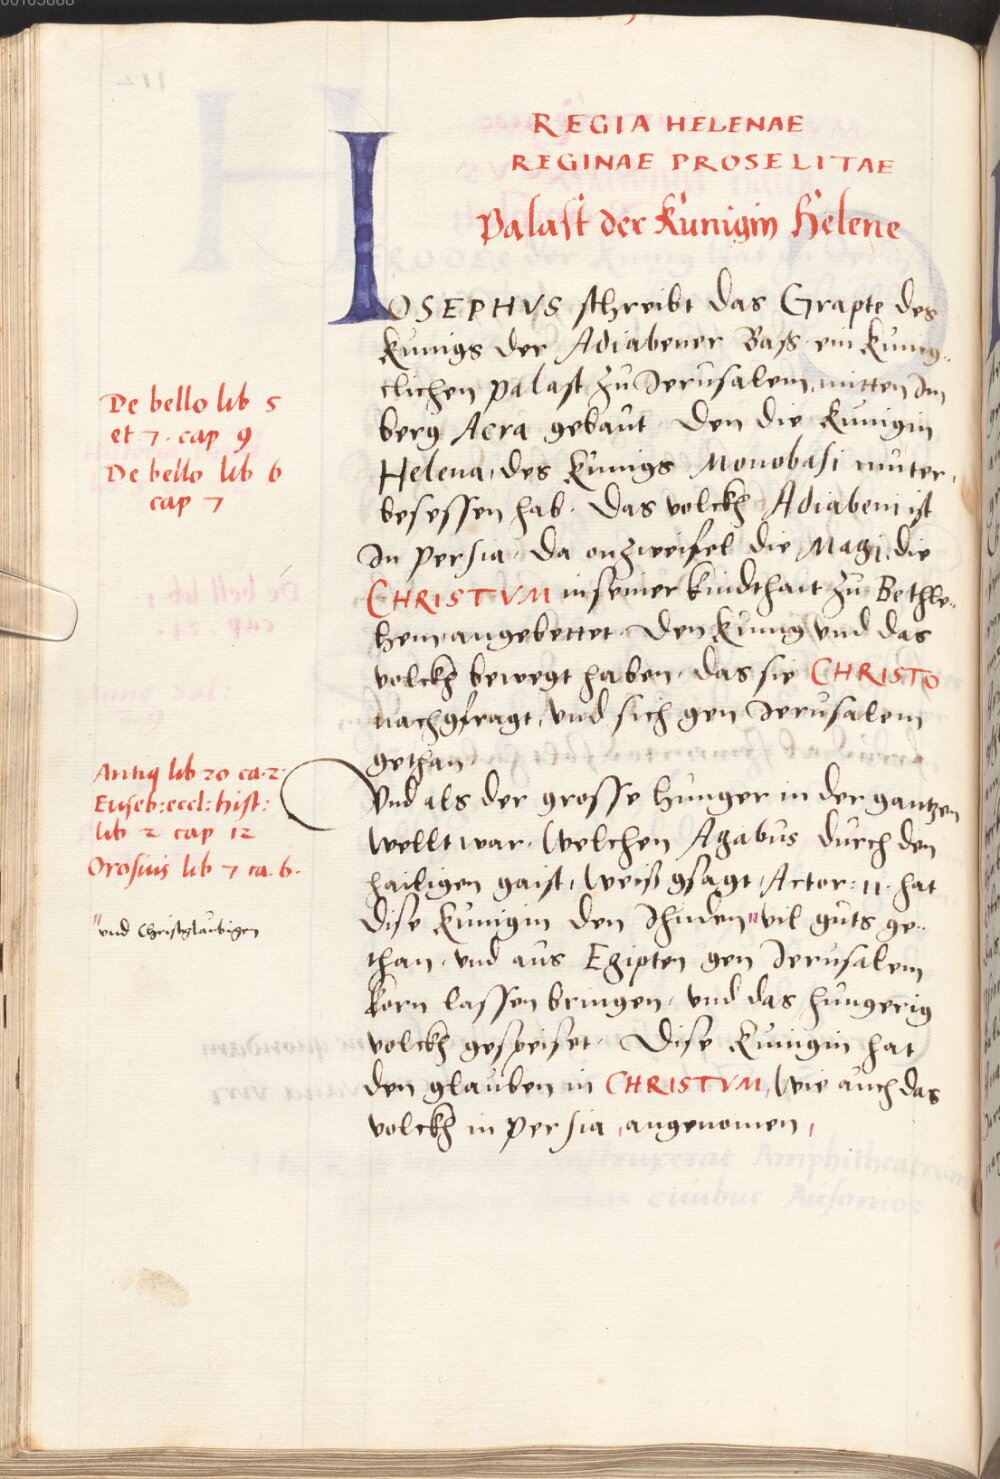 REGIA HELENAE
REGINAE PROSELITAE
Palast der Künigin Helene
IOSEPHVS schreibt das Grapte des
Künigs der Adiabener Baß ein künig-
clichen palast zu Jerusalem, mitten Im
berg Acra gebaut. Den die Künigin
Helena, des Künigs Monobasi muter,
besessen hab. Das volckh Adiabeni ist
In Persia. Da onzweifel die Magi, die
CHRISTVM in seiner kindthait zu Bethle-
hem angebettet. Den Künig vnd das
volckh bewegt haben, das sie CHRISTO
nachgfragt, vnd sich gen Jerusalem
gethan
Vnd als der grosse hunger in der gantzen
wellt war, Welchen Agabus durch den
hailigen gaist, Weiß gsagt, Actor: 11. hat
dise Künigin den Jhuden " vil guts ge-
than, vnd aus Egipten gen Jerusalem
korn lassen bringen, vnd das hungerig
volckh gespeiset. Dise Künigin hat
den glauben in CHRISTVM, Wie auch das
volckh in Persia, angenomen,
De bello lib 5
et 7. cap 9
De bello lib 6
cap 7
Antiq lib 20 ca. 2.
Euseb: eccl: hist:
lib 2 cap 12
Orosius lib 7 ca. 6.
" vnd Christglaubigen